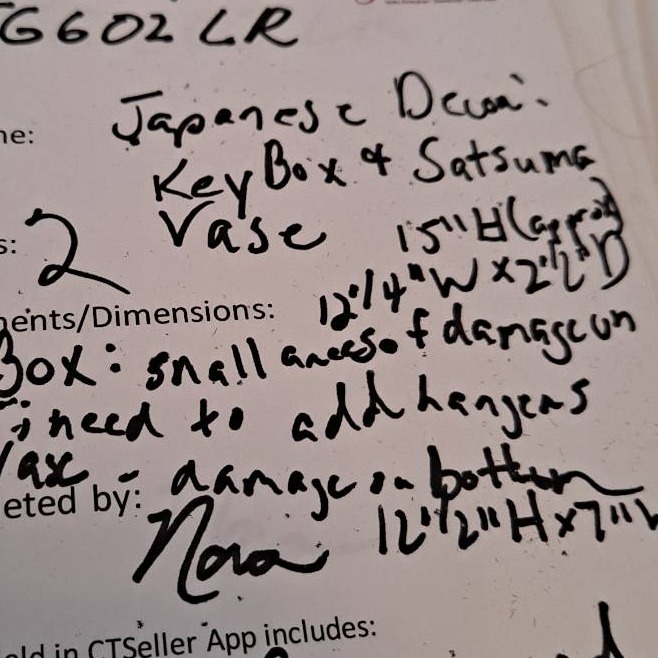 G602 LR
Japanese Decor:
Key Box & Satsuma
Vase 15"H (approx)
2
12 1/4"W x 2 1/2"D
ents/Dimensions:
Box: small areas of damage on
; need to add hangers
Vase - damage on bottom
eted by:
Nora 12 1/2"H x 7"W
ld in CTSeller App includes: